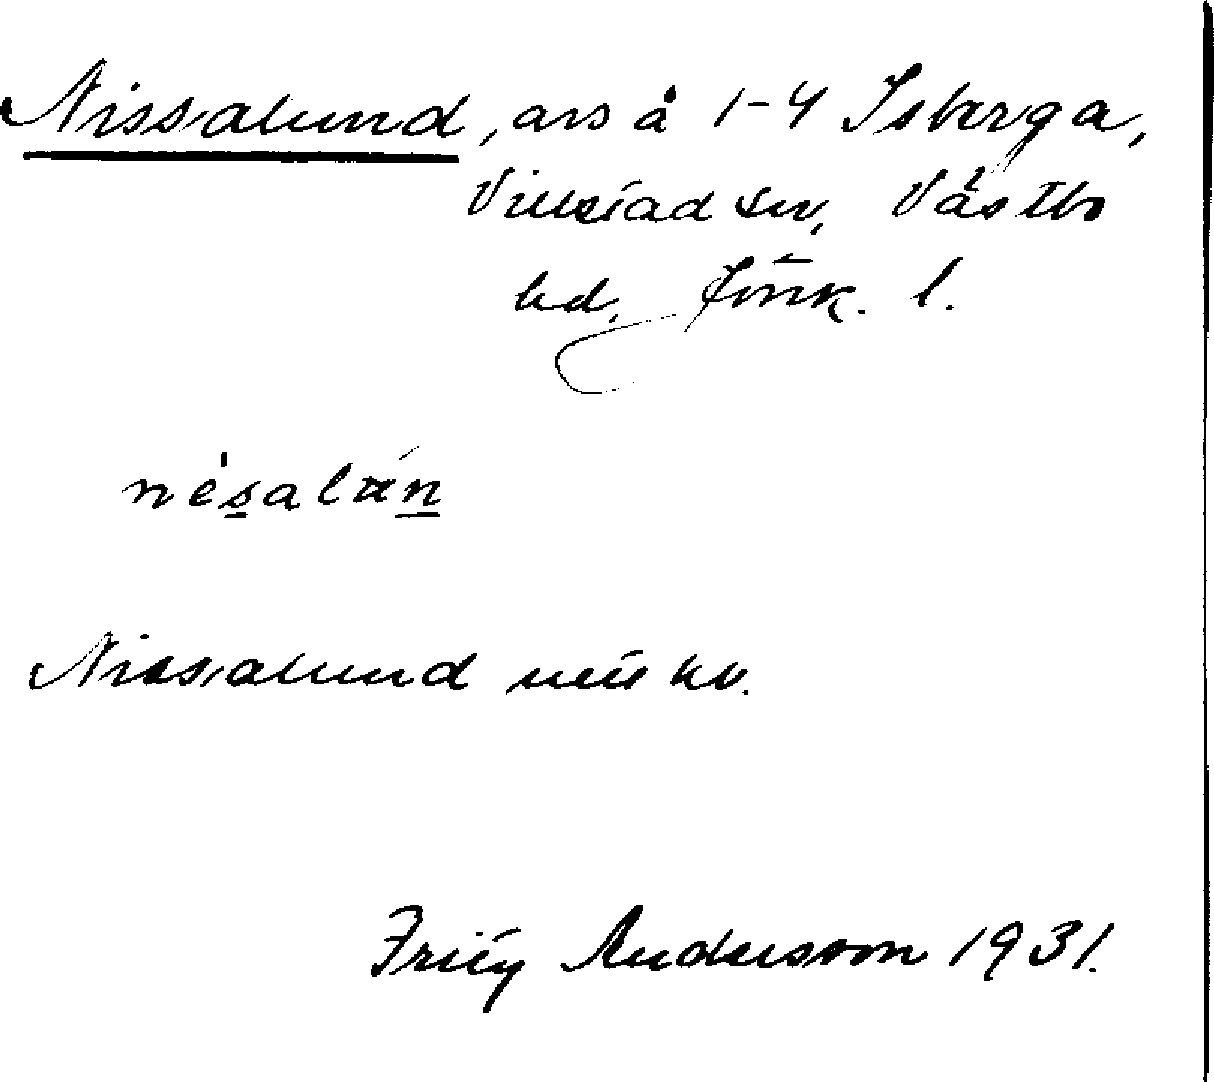 Nissalund, avs å 1-4 Isberga,
Villstad sn, Västbo
hd, Jönk. l.
nèsalán
Nissalund
hv.
Fritz Andersson 1931.